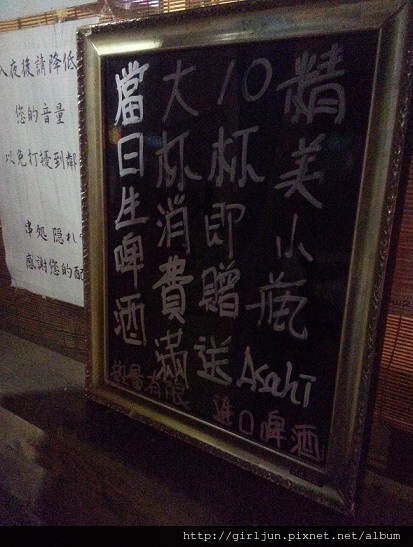 入夜後請降低
您的音量
以免打擾到鄰
串処 隠れ
感謝您的配
當日生啤酒
大杯消費滿
10杯即贈送
精美小瓶Asahi
進口啤酒
數量有限
http://girljun.pixnet.net/album